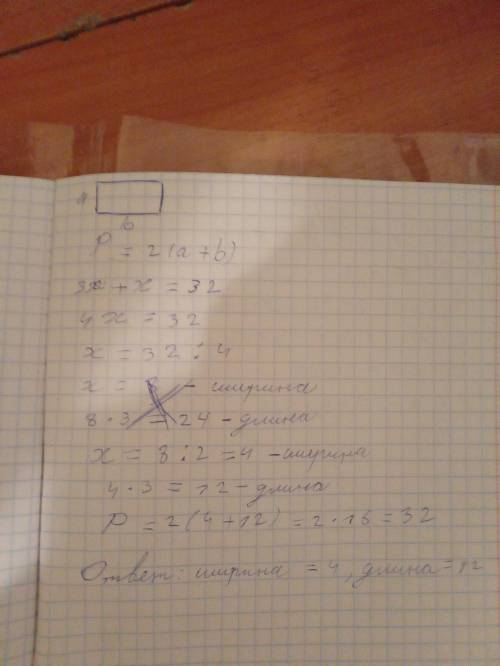 a
b
P = 2(a+b)
3x + x = 32
4x = 32
x = 32 : 4
x = 8 - ширина
8 · 3 = 24 - длина
x = 8 : 2 = 4 - ширина
4 · 3 = 12 - длина
P = 2(4+12) = 2 · 16 = 32
Ответ: ширина = 4, длина = 12